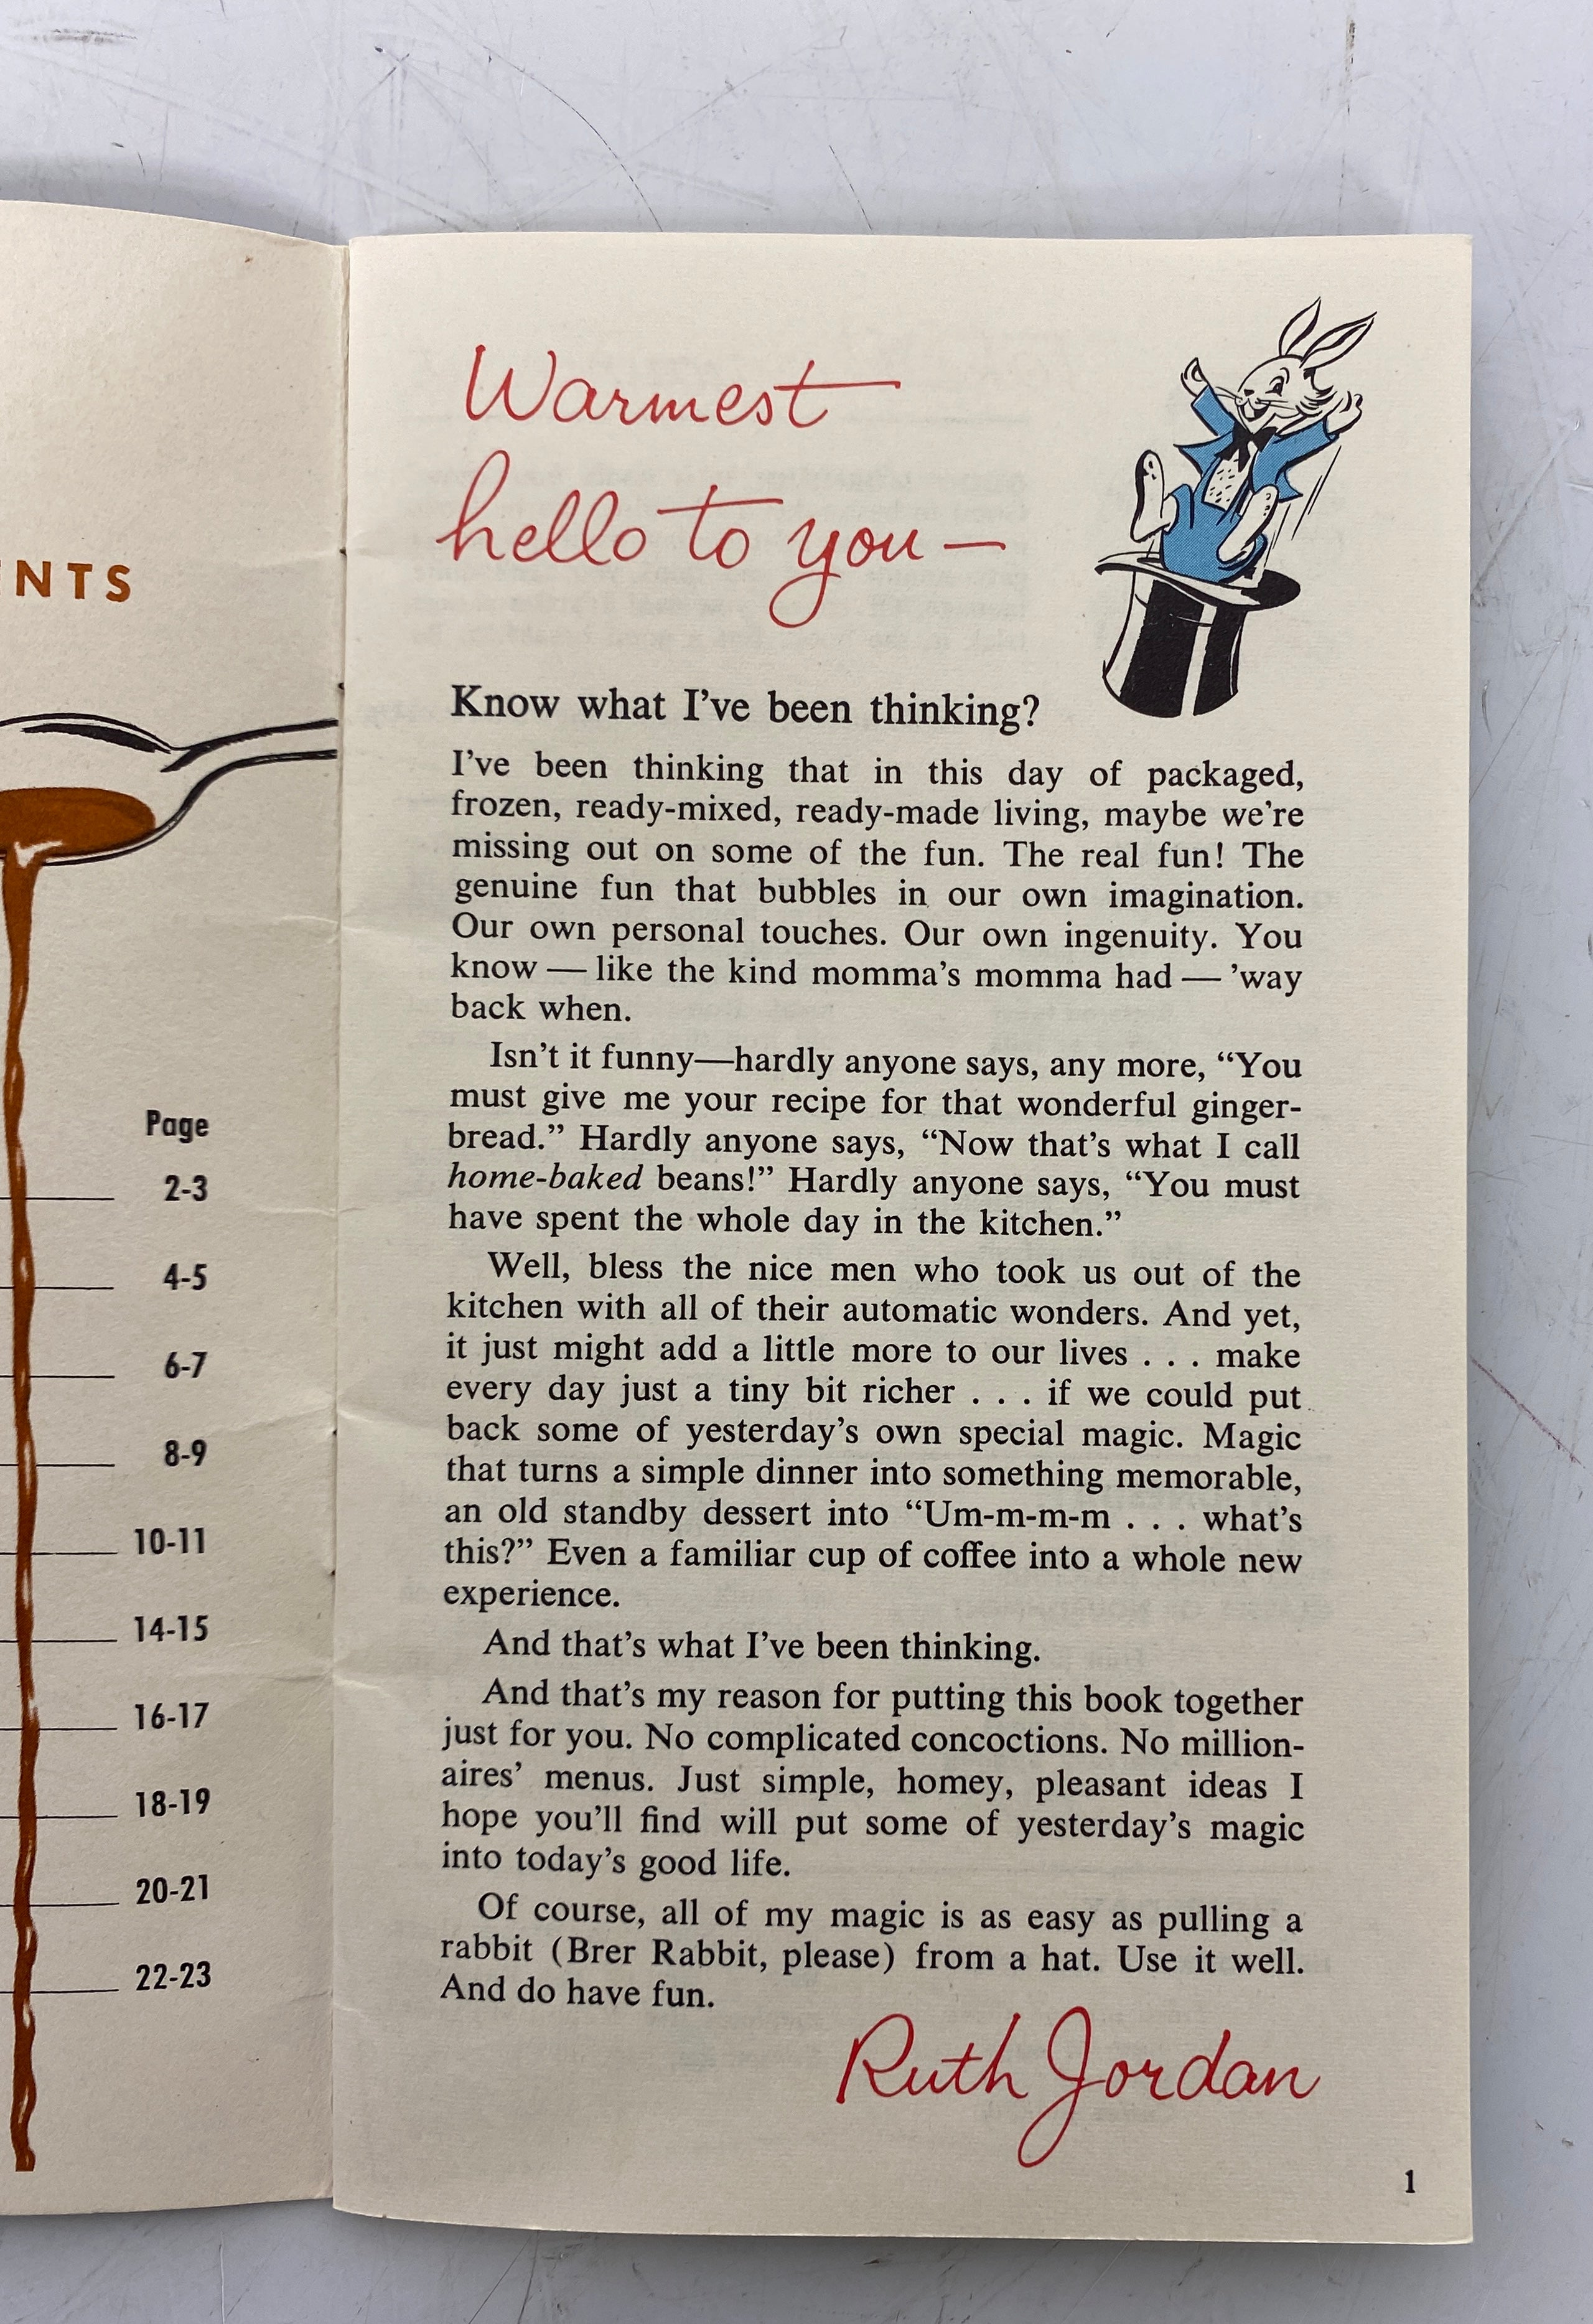 NTS
Page
2-3
4-5
6-7
8-9
10-11
14-15
16-17
18-19
20-21
22-23
Warmest
hello to you—
Know what I've been thinking?
I've been thinking that in this day of packaged,
frozen, ready-mixed, ready-made living, maybe we're
missing out on some of the fun. The real fun! The
genuine fun that bubbles in our own imagination.
Our own personal touches. Our own ingenuity. You
know — like the kind momma's momma had — 'way
back when.
Isn't it funny—hardly anyone says, any more, “You
must give me your recipe for that wonderful ginger-
bread.” Hardly anyone says, “Now that's what I call
home-baked beans!” Hardly anyone says, “You must
have spent the whole day in the kitchen.”
Well, bless the nice men who took us out of the
kitchen with all of their automatic wonders. And yet,
it just might add a little more to our lives . . . make
every day just a tiny bit richer . . . if we could put
back some of yesterday's own special magic. Magic
that turns a simple dinner into something memorable,
an old standby dessert into “Um-m-m-m . . . what's
this?” Even a familiar cup of coffee into a whole new
experience.
And that's what I've been thinking.
And that's my reason for putting this book together
just for you. No complicated concoctions. No million-
aires' menus. Just simple, homey, pleasant ideas I
hope you'll find will put some of yesterday's magic
into today's good life.
Of course, all of my magic is as easy as pulling a
rabbit (Brer Rabbit, please) from a hat. Use it well.
And do have fun.
Ruth Jordan
1